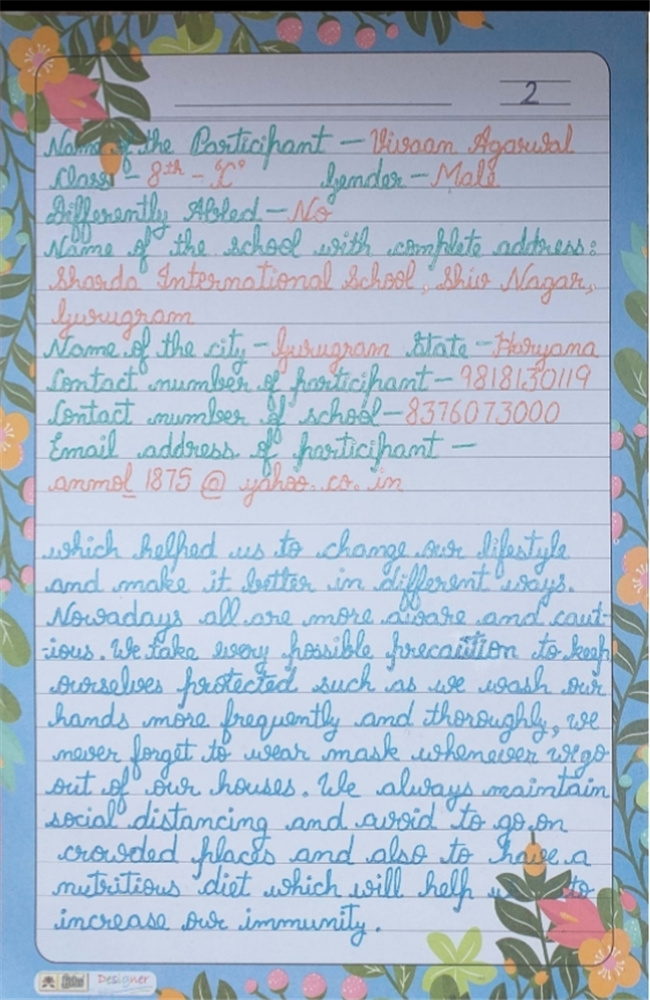 2
Name of the Participant - Vivaan Agarwal
Class - 8th - 'C' Gender - Male
Differently Abled - No
Name of the school with complete address:
Sharda International School, Shiv Nagar,
Gurugram
Name of the city - Gurugram State - Haryana
Contact number of participant - 9818130119
Contact number of school - 8376073000
Email address of participant -
anmol_1875@yahoo.co.in
which helped us to change our lifestyle
and make it better in different ways.
Nowadays all are more aware and caut-
-ious. We take every possible precaution to keep
ourselves protected such as we wash our
hands more frequently and thoroughly, we
never forget to wear mask whenever we go
out of our houses. We always maintain
social distancing and avoid to go on
crowded places and also to have a
nutritious diet which will help us to
increase our immunity.
Designer